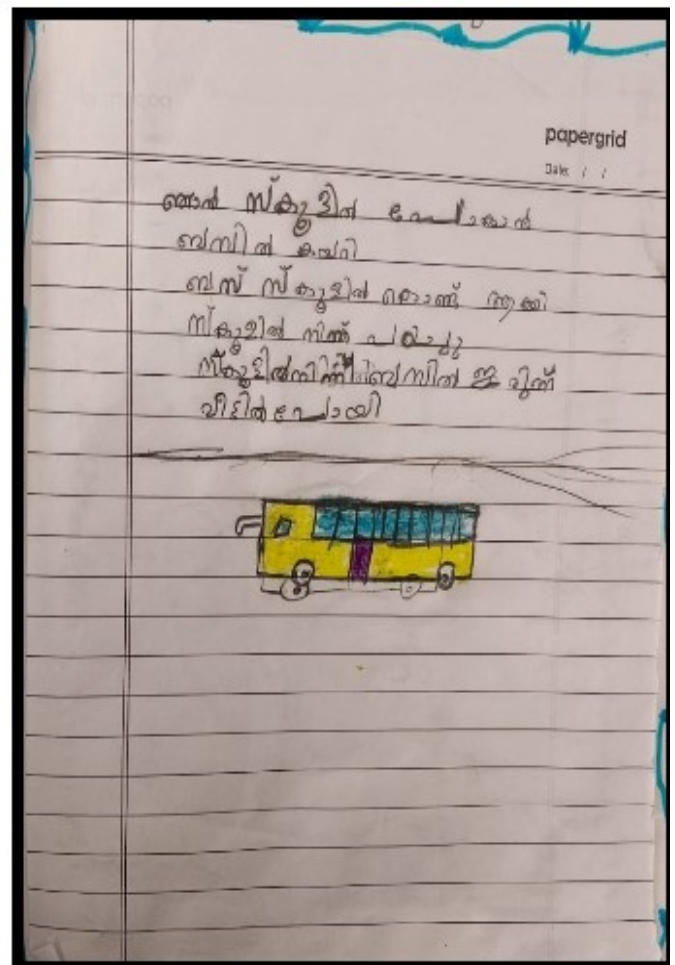 papergrid
Date: / /
ഞാൻ സ്കൂളിൽ പോകാൻ
ബസിൽ കയറി
ബസ് സ്കൂളിൽ കൊണ്ട് ആക്കി
സ്കൂളിൽ നിന്ന് പഠിച്ചു
സ്കൂളിൽനിന്ന് ബസിൽ
വീട്ടിൽ പോയി